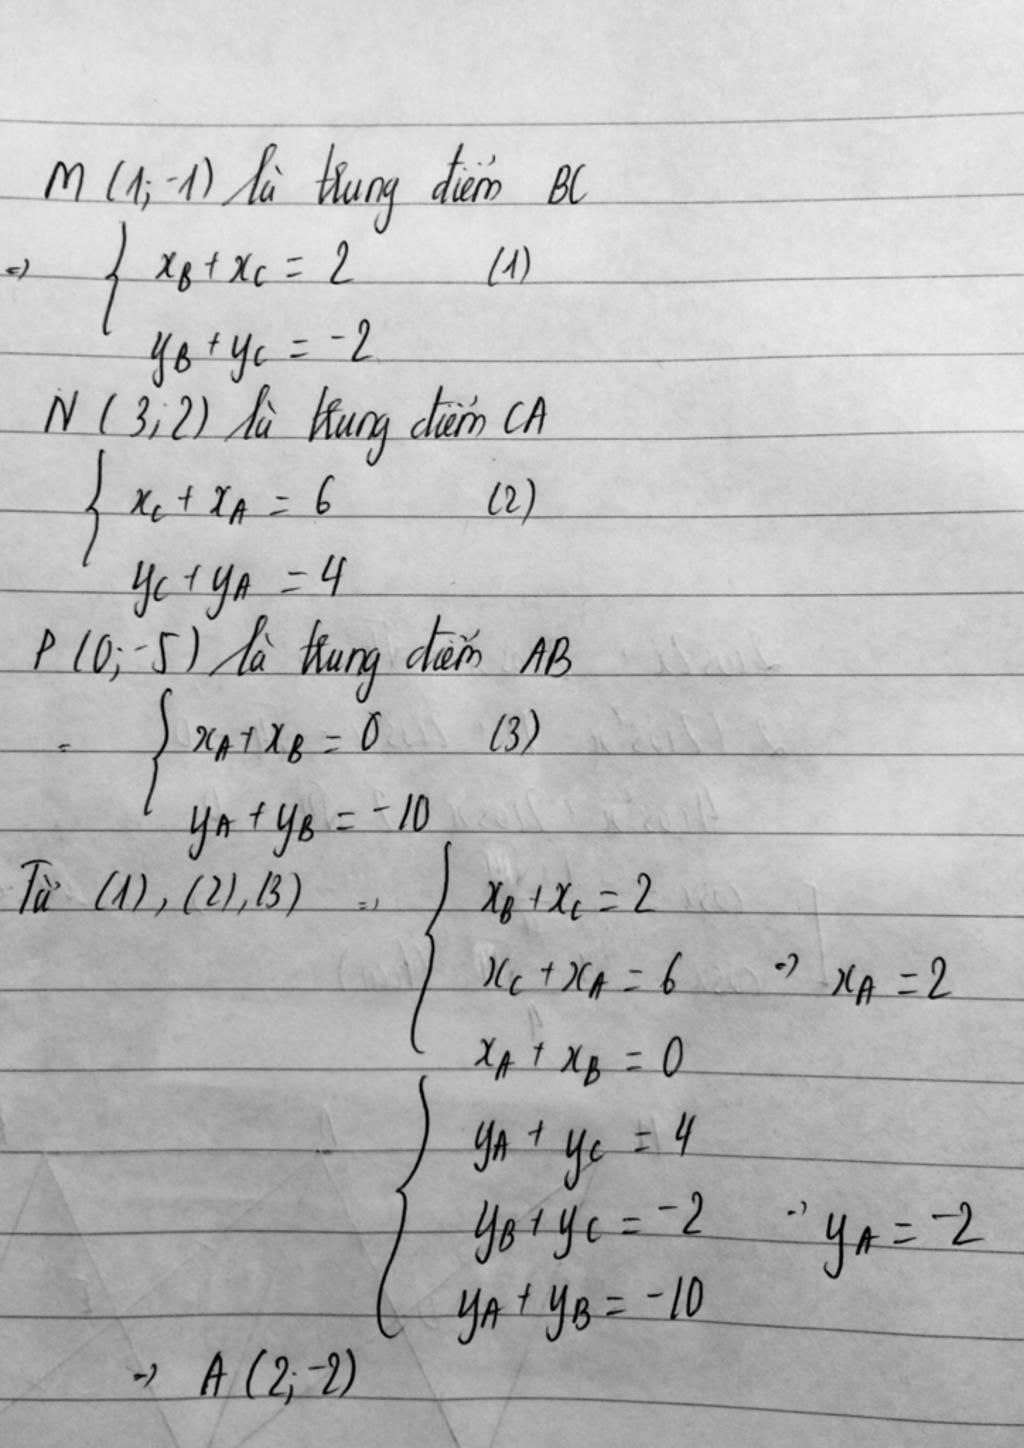 M (1; -1) là trung điểm BC
=> { x_B + x_C = 2 (1)
y_B + y_C = -2
N (3; 2) là trung điểm CA
{ x_C + x_A = 6 (2)
y_C + y_A = 4
P (0; -5) là trung điểm AB
= { x_A + x_B = 0 (3)
y_A + y_B = -10
Từ (1), (2), (3) => { x_B + x_C = 2
x_C + x_A = 6 => x_A = 2
x_A + x_B = 0
{ y_A + y_C = 4
y_B + y_C = -2 => y_A = -2
y_A + y_B = -10
=> A (2; -2)